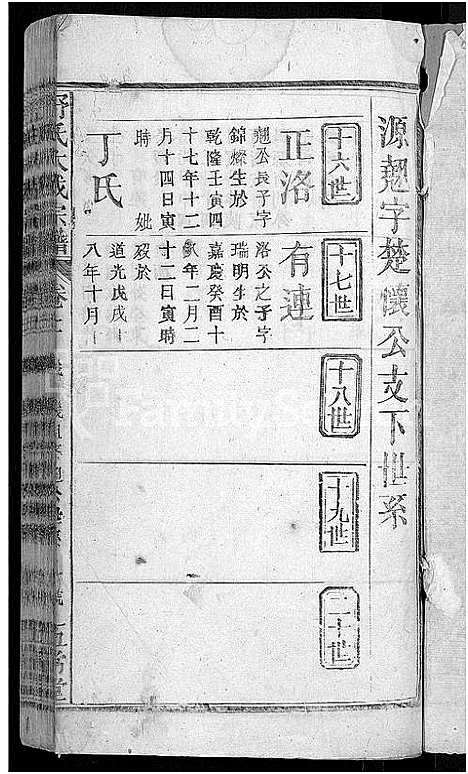 源翹字楚懷公支下世系
十六世
正洛
翹公長子字
錦燦生於
乾隆壬寅四
十七年十二
月十四日寅
時 妣
丁氏
十七世
有連
洛公之子字
瑞明生於
嘉慶癸酉十
八年二月二
十二日寅時
歿於
道光戊戌十
八年十月
十八世
十九世
二十世
氏大成宗譜